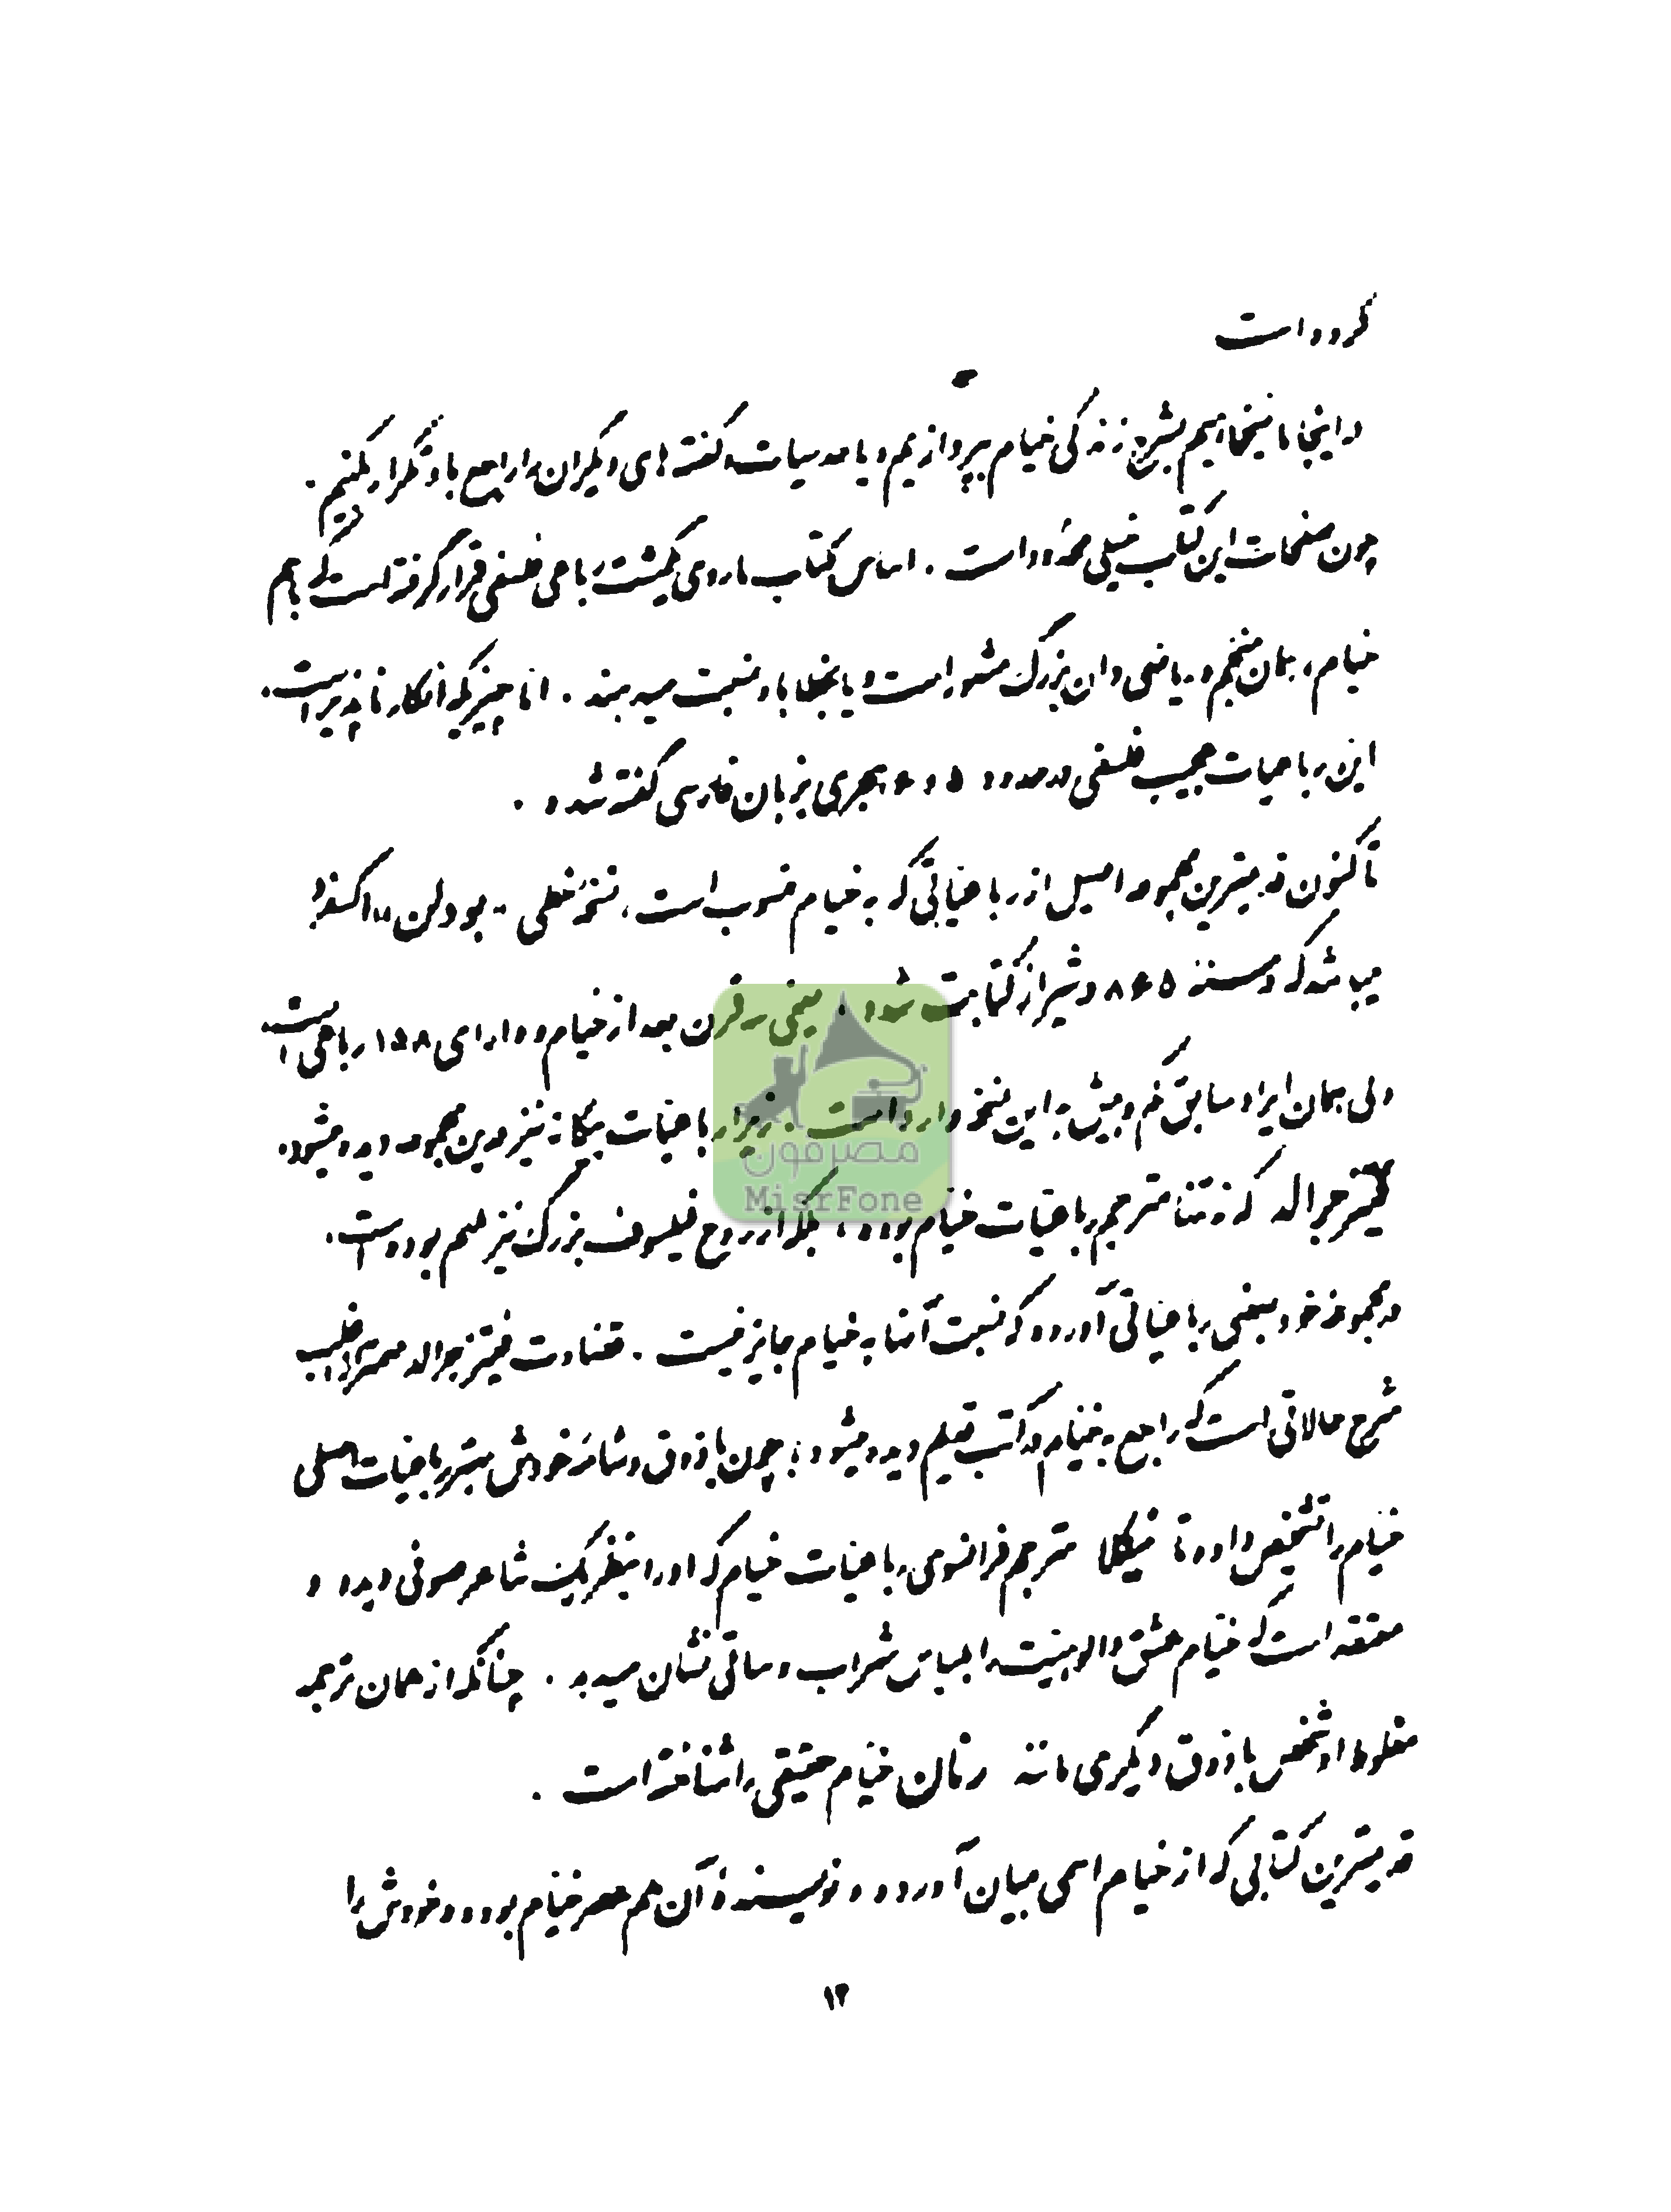 کرده است
در اینجا ما نمیخواهیم بشرح زندگی خیام بپردازیم و یا حدسیات و گفته های دیگران را راجع باو تکرار بکنیم.
چون صفحات این کتاب خیلی محدود است. اساس کتاب ما روی یکمشت رباعی فلسفی قرار گرفته است که باسم
خیام، همان منجم و ریاضی دان بزرگ مشهور است و یا بخطا باو نسبت میدهند. اما چیزیکه انکار ناپذیر است،
این رباعیات عجیب فلسفی در حدود ۵ و ۶ هجری بزبان فارسی گفته شده.
تا کنون قدیمترین مجموعه اصیل از رباعیاتی که به خیام منسوب است، نسخهٔ خطی «بودلن» اکسفرد
میباشد که در سنه ۸۶۵ در شیراز کتابت شده، یعنی سه قرن بعد از خیام و دارای ۱۵۸ رباعی است،
ولی همان ایراد سابق کم و بیش به این نسخه وارد است. زیرا رباعیات بیگانه نیز درین مجموعه دیده میشود.
فیتزجرالد که نه تنها مترجم رباعیات خیام بوده، بلکه از روح فیلسوف بزرگ نیز ملهم بوده است،
در مجموعه خود بعضی رباعیاتی آورده که نسبت آنها به خیام جایز نیست. قضاوت فیتزجرالد مهمتر از اغلب
شرح حالاتی است که راجع به خیام در کتب قدیم دیده میشود؛ چون با ذوق و شامه خودش بهتر رباعیات اصلی
خیام را تشخیص داده تا نیکلا مترجم فرانسوی رباعیات خیام که او را بنظر یک شاعر صوفی دیده و
معتقد است که خیام عشق و الوهیت را بلباس شراب و ساقی نشان میدهد. چنانکه از همان ترجمه
مغلوط او شخص با ذوق دیگری مانند رنان خیام حقیقی را شناخته است.
قدیمترین کتابی که از خیام اسمی بمیان آورده و نویسندهٔ آن هم عصر خیام بوده و خودش را
۱۲
مصرفون
MisrFone